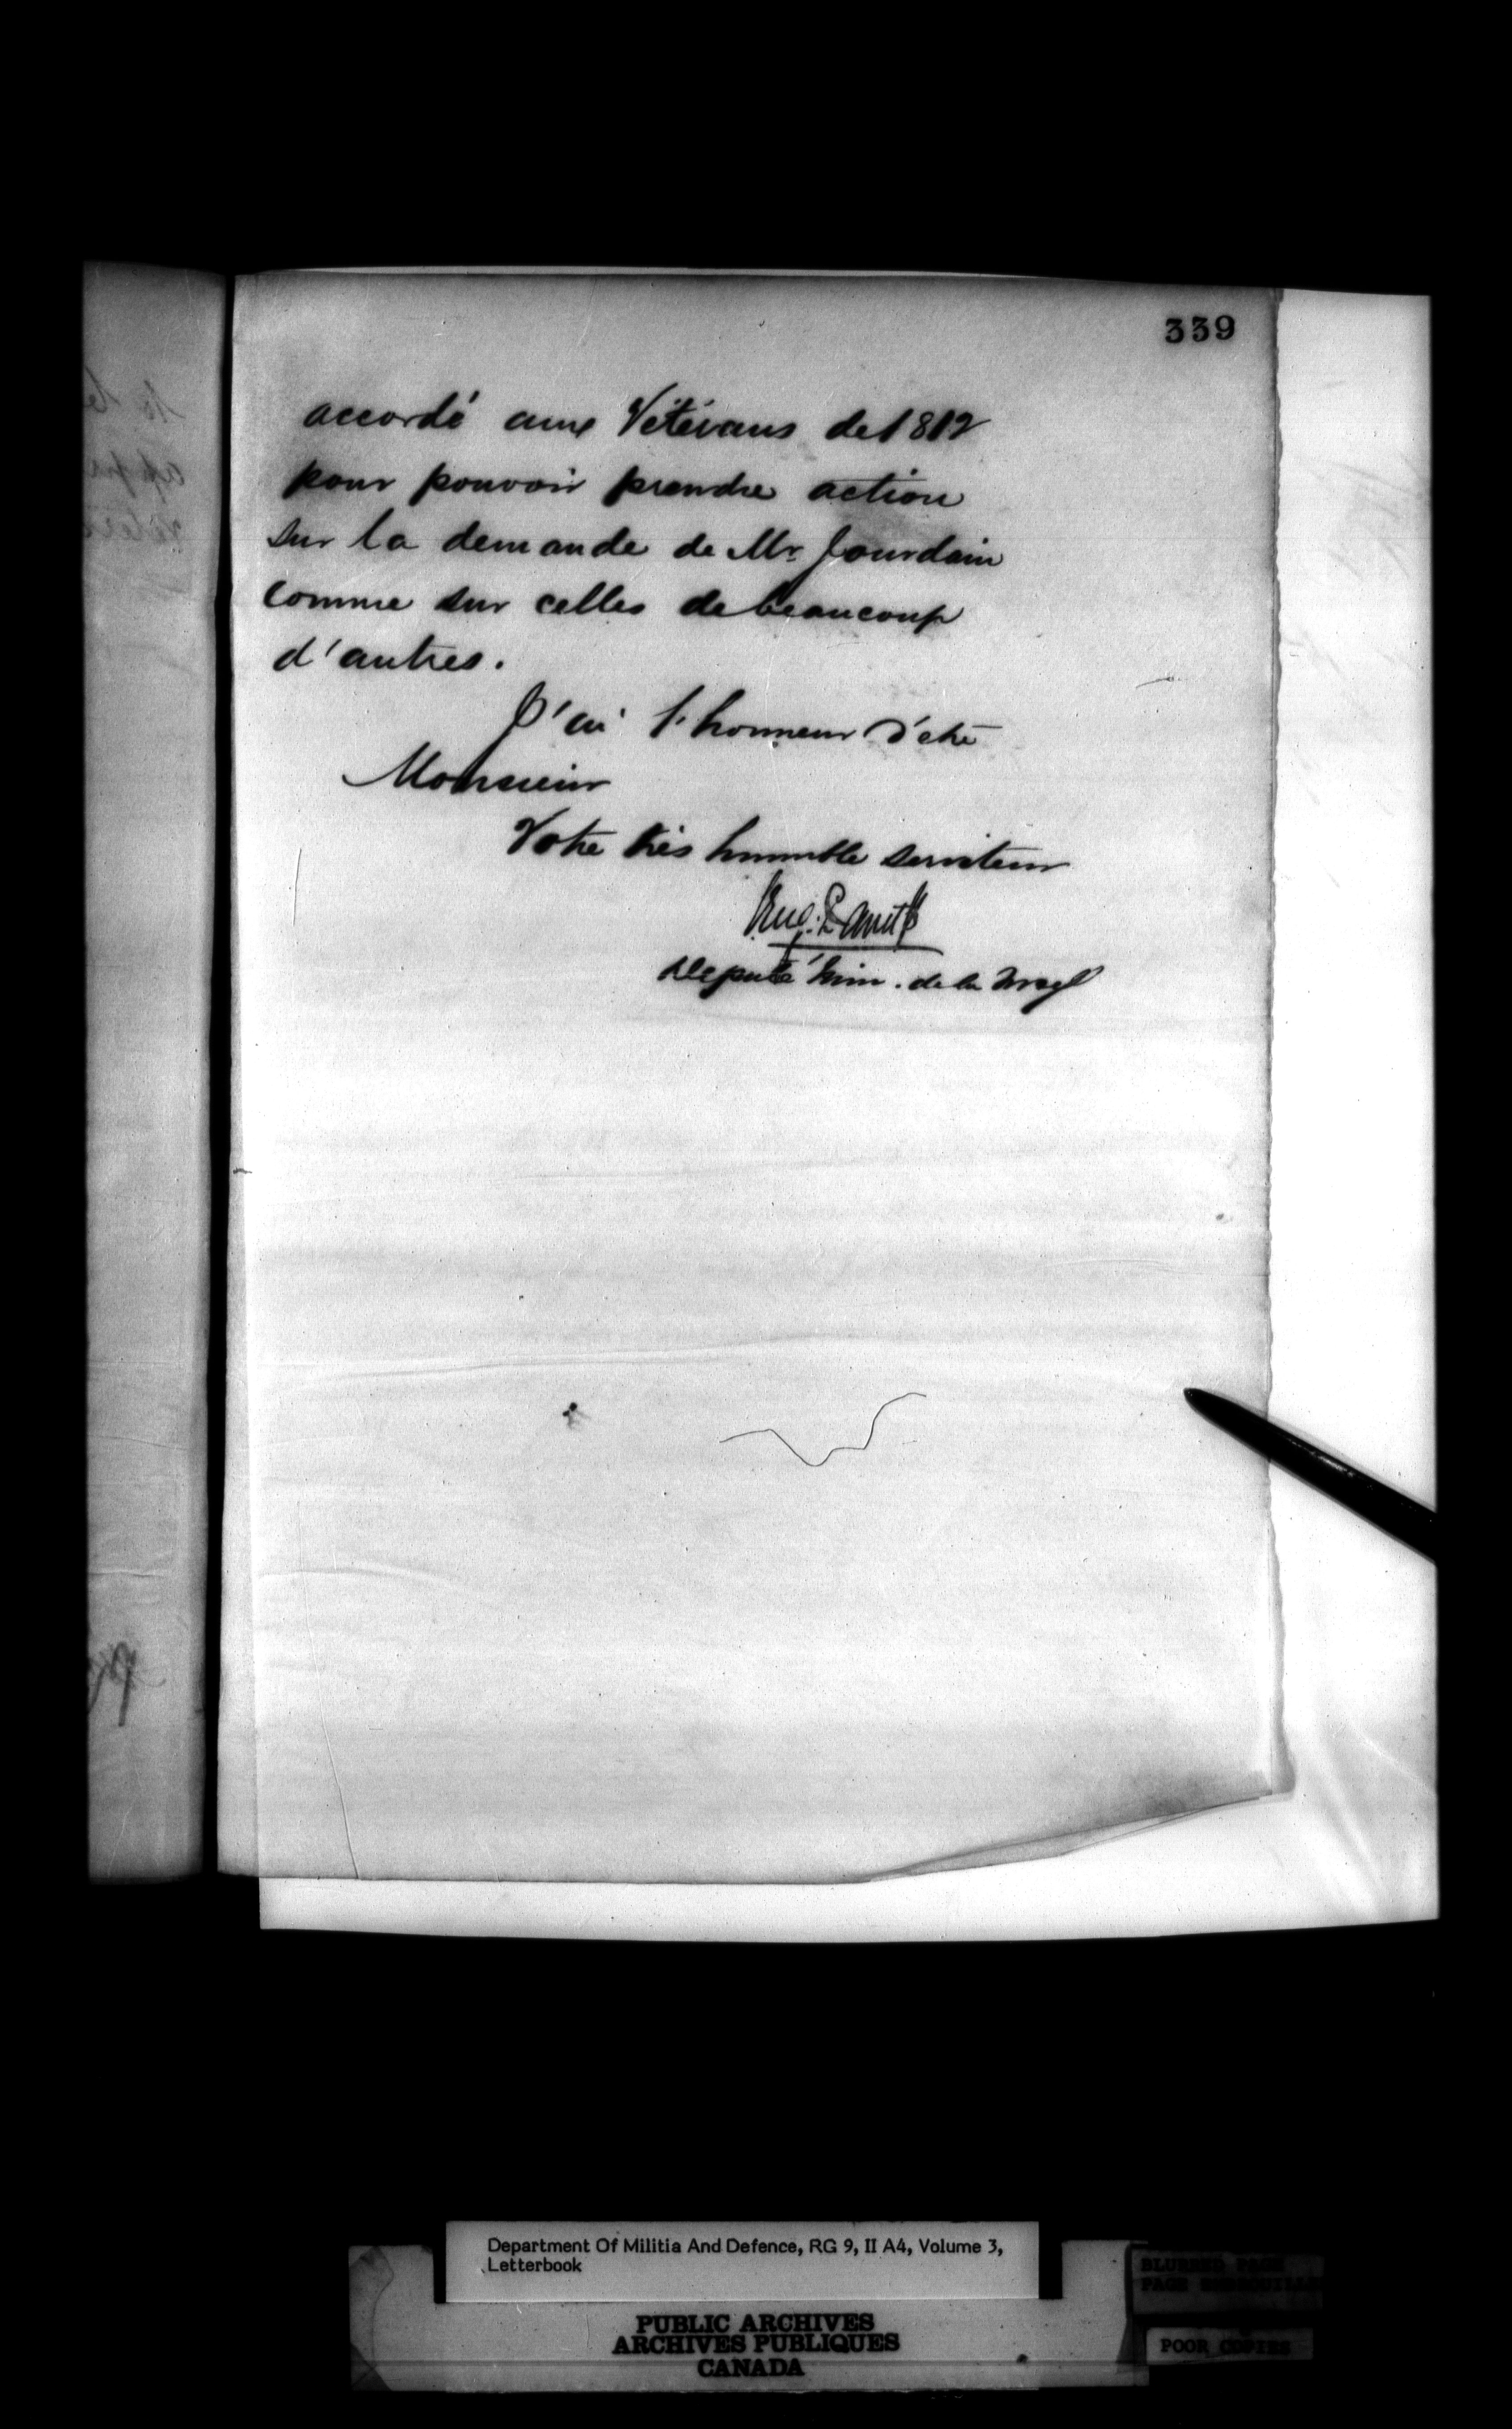 339
accordé aux Vétérans de 1812
pour pouvoir prendre action
sur la demande de Mr Jourdain
comme sur celles de beaucoup
d'autres.
J'ai l'honneur d'être
Monsieur
Votre très humble serviteur
Eug. Panet
Député Min. de la
Department Of Militia And Defence, RG 9, II A4, Volume 3,
Letterbook
PUBLIC ARCHIVES
ARCHIVES PUBLIQUES
CANADA
BLURRED PAGE
PAGE EMBROUILLEE
POOR COPIES